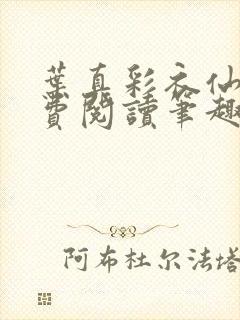 葉真彩衣仙
費閱讀筆趣
阿布杜尔法塔